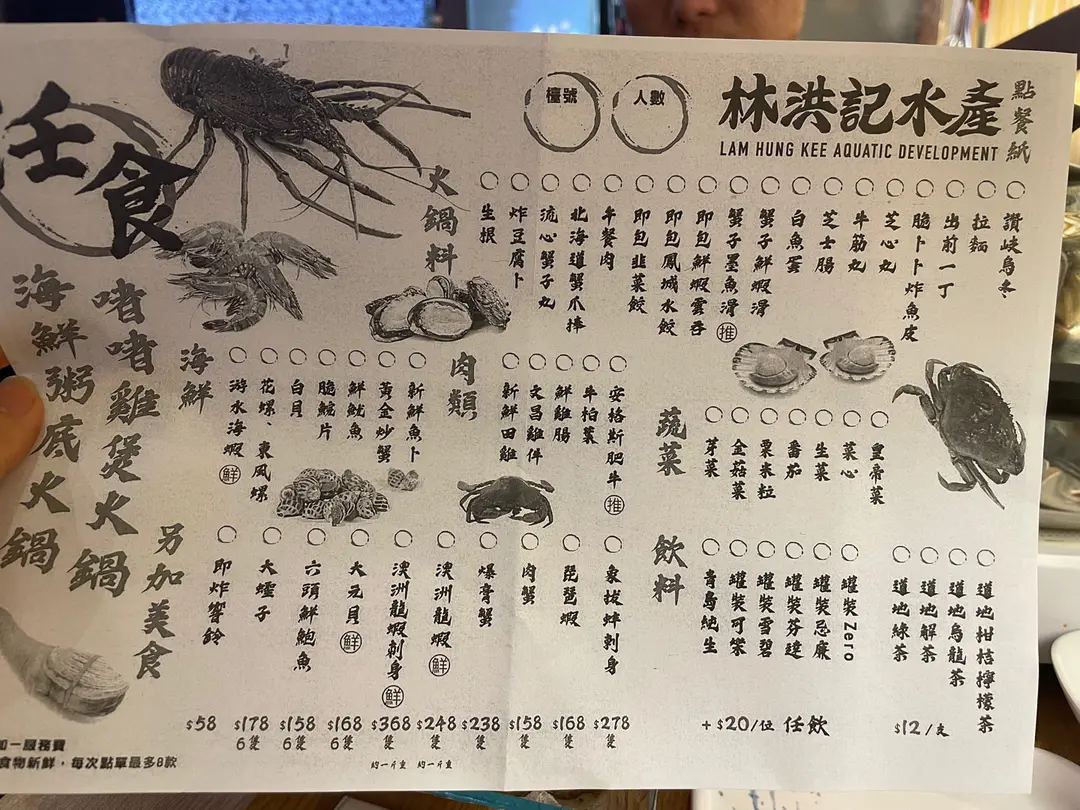 林洪記水產
點餐紙
LAM HUNG KEE AQUATIC DEVELOPMENT
人數
檯號
任食
啫啫雞煲火鍋
海鮮粥底火鍋
火鍋料
讚岐烏冬
拉麵
出前一丁
脆卜卜炸魚皮
芝心丸
牛筋丸
芝士腸
白魚蛋
蟹子鮮蝦滑
蟹子墨魚滑 推
即包鮮蝦雲吞
即包鳳城水餃
即包韮菜餃
午餐肉
北海道蟹爪捧
流心蟹子丸
炸豆腐卜
生根
海鮮
新鮮魚卜
黃金炒蟹
鮮魷魚
脆鯇片
白貝
花螺、東風螺
游水海蝦 鮮
肉類
安格斯肥牛 推
牛柏葉
鮮雞腸
文昌雞件
新鮮田雞
蔬菜
皇帝菜
菜心
生菜
番茄
粟米粒
金菇菜
芽菜
另加美食
象拔蚌刺身
$278
隻
琵琶蝦
$168
隻
肉蟹
$158
隻
爆膏蟹
$238
隻
澳洲龍蝦 鮮
$248
隻
約一斤重
澳洲龍蝦刺身 鮮
$368
隻
約一斤重
大元貝 鮮
$168
6隻
六頭鮮鮑魚
$158
6隻
大蟶子
$178
6隻
即炸響鈴
$58
飲料
道地柑桔檸檬茶
道地烏龍茶
道地解茶
道地綠茶
$12/支
罐裝Zero
罐裝忌廉
罐裝芬達
罐裝雪碧
罐裝可樂
青島純生
+$20/位 任飲
加一服務費
食物新鮮，每次點單最多8款